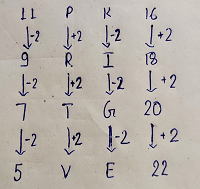 11 P K 16
↓-2 ↓+2 ↓-2 ↓+2
9 R I 18
↓-2 ↓+2 ↓-2 ↓+2
7 T G 20
↓-2 ↓+2 ↓-2 ↓+2
5 V E 22